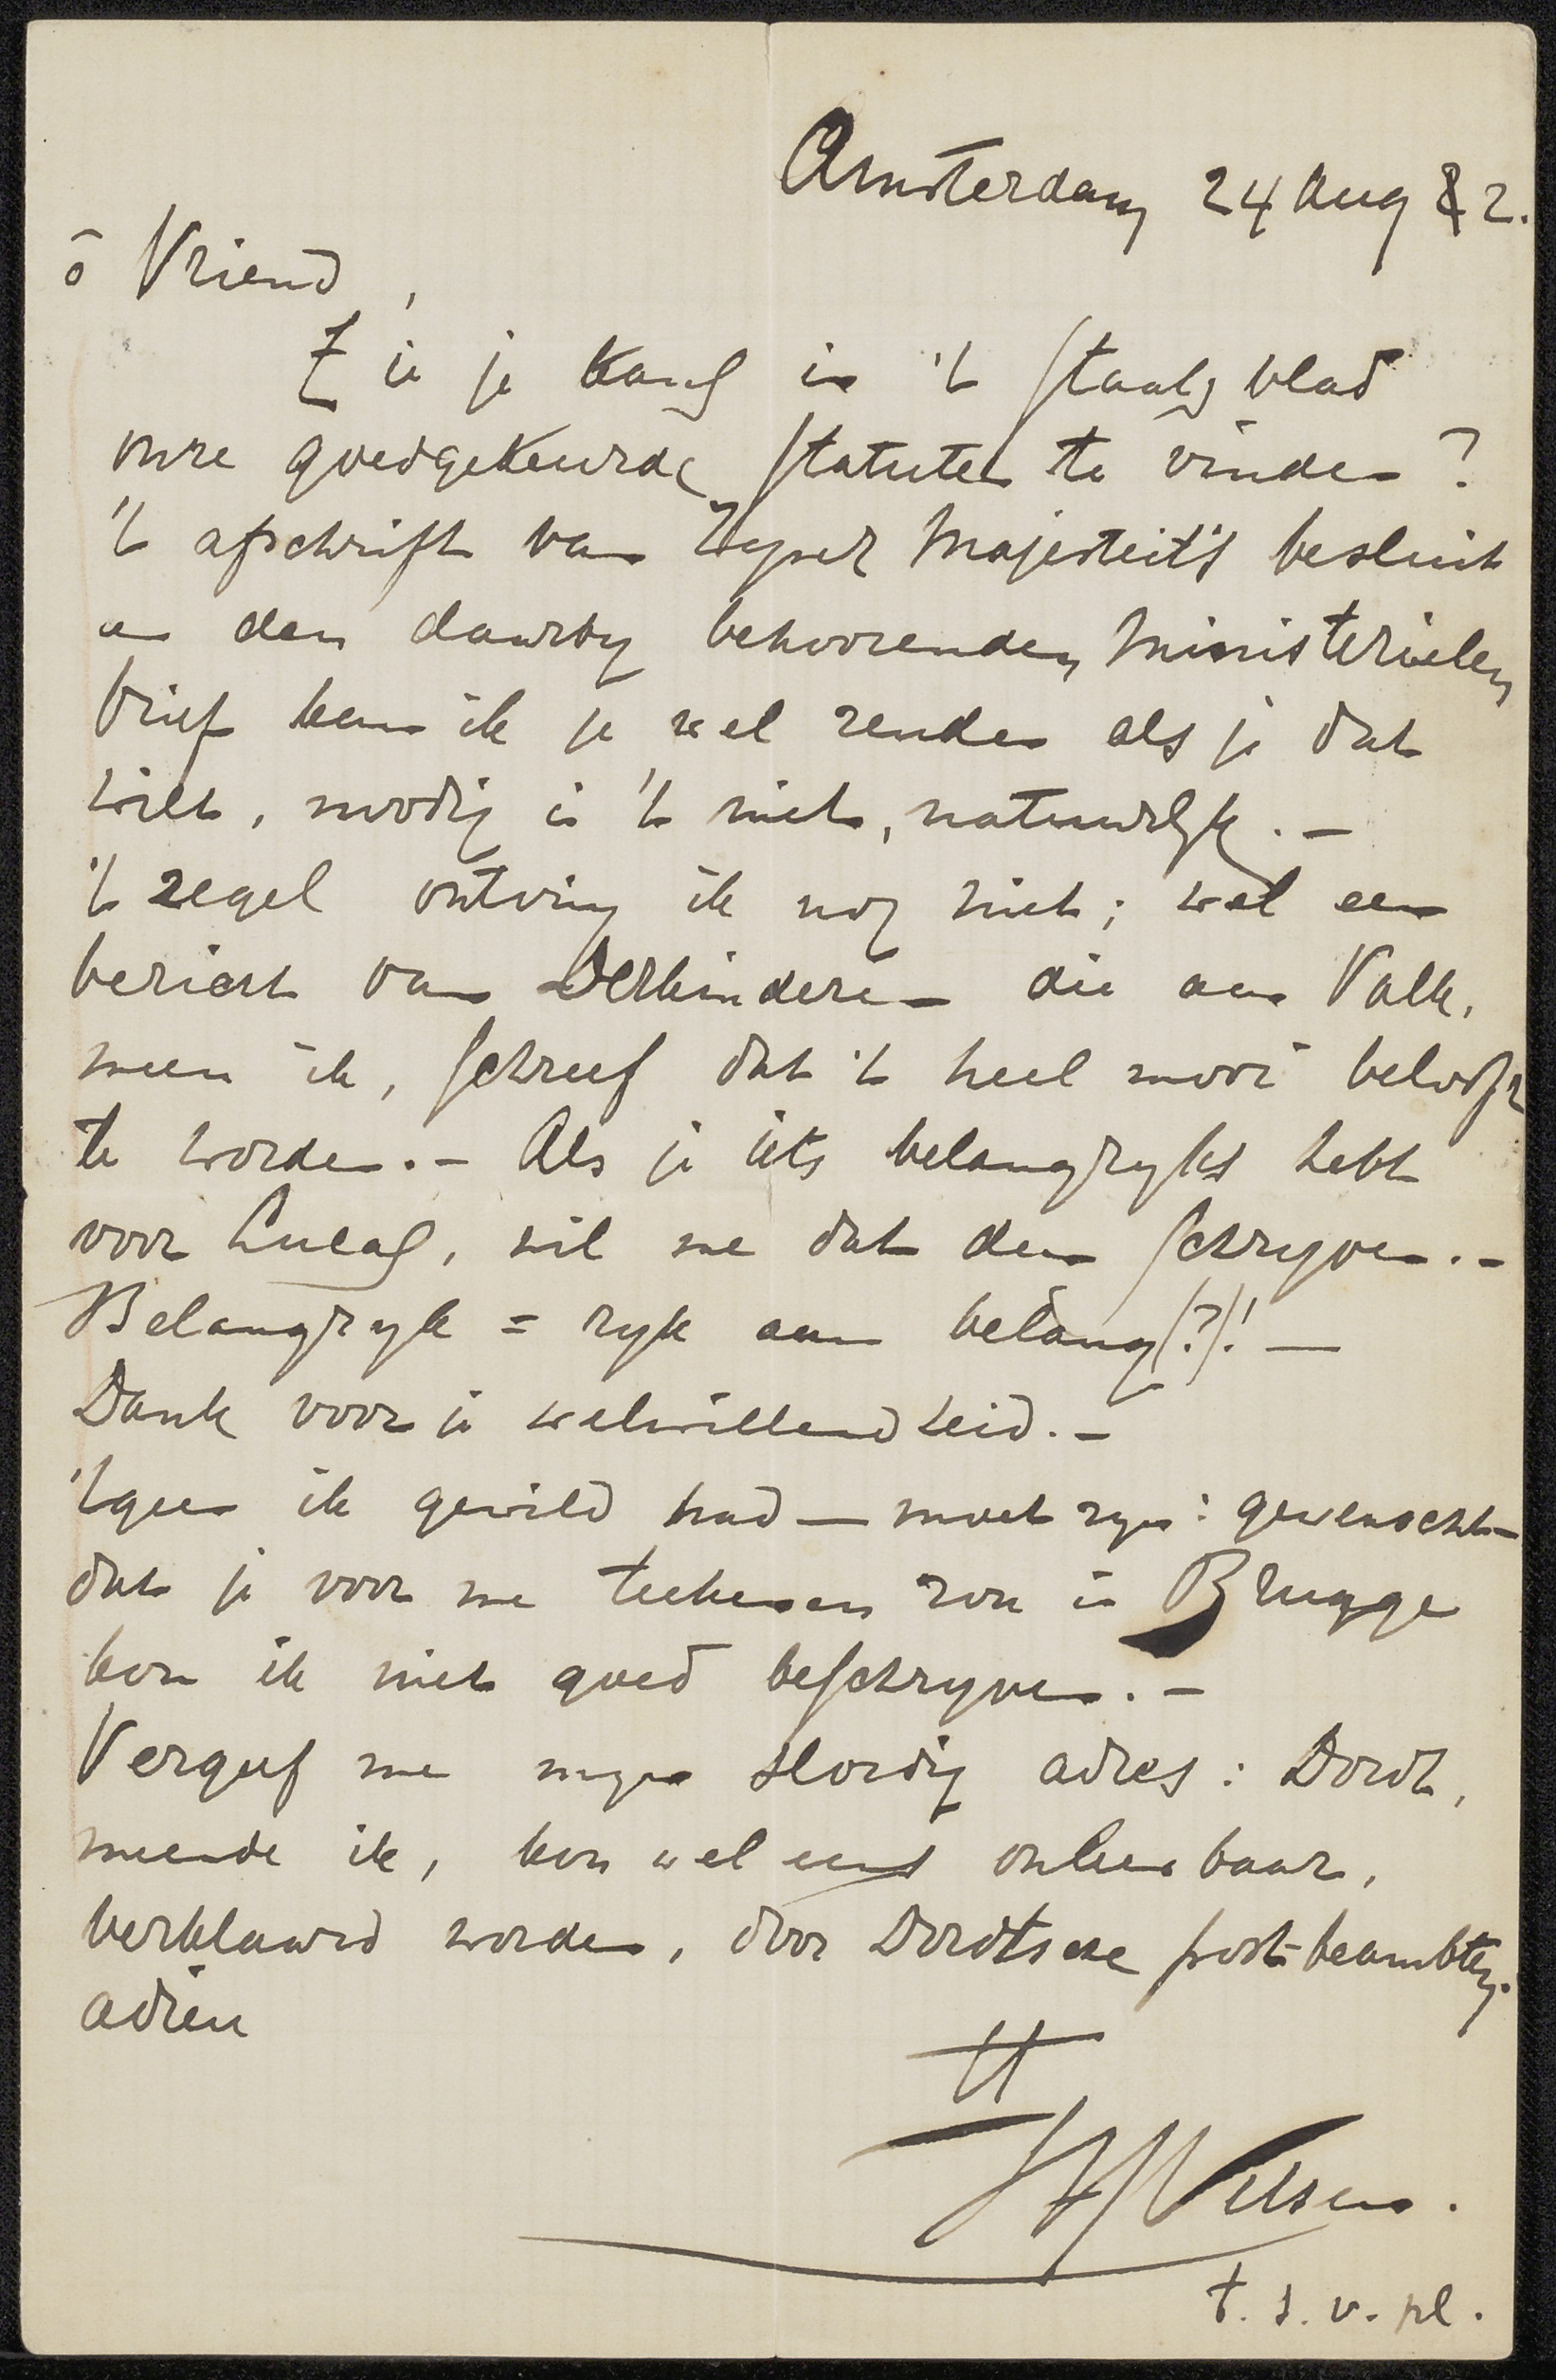 Amsterdam 24 Aug 82.
ō Vriend,
Zie je kans in 't Staatsblad
onze goedgekeurde Statuten te vinden?
't afschrift van Zijner Majesteit's besluit
en den daarbij behoorenden Ministerielen
brief kan ik je wel zenden als je dat
wilt, noodig is 't niet, natuurlijk. –
't zegel ontving ik nog niet; wel een
bericht van Derkinderen die aan Valk,
meen ik, schreef dat 't heel mooi beloofde
te worden. – Als je iets belangrijks hebt
voor Lucas, wil me dat dan schrijven. –
Belangrijk = rijk aan belang (?)! —
Dank voor je welwillendheid. –
'tgeen ik gewild had — moet zijn: gewenscht –
dat je voor me teekenen zou in Brugge
kon ik niet goed beschrijven. –
Vergeef me mijn slordig adres: Dordt,
meende ik, kon wel eens onleesbaar,
verklaard worden, door Dordtsche post-beambten.
adieu
tt
Velsen.
t. s. v. pl.